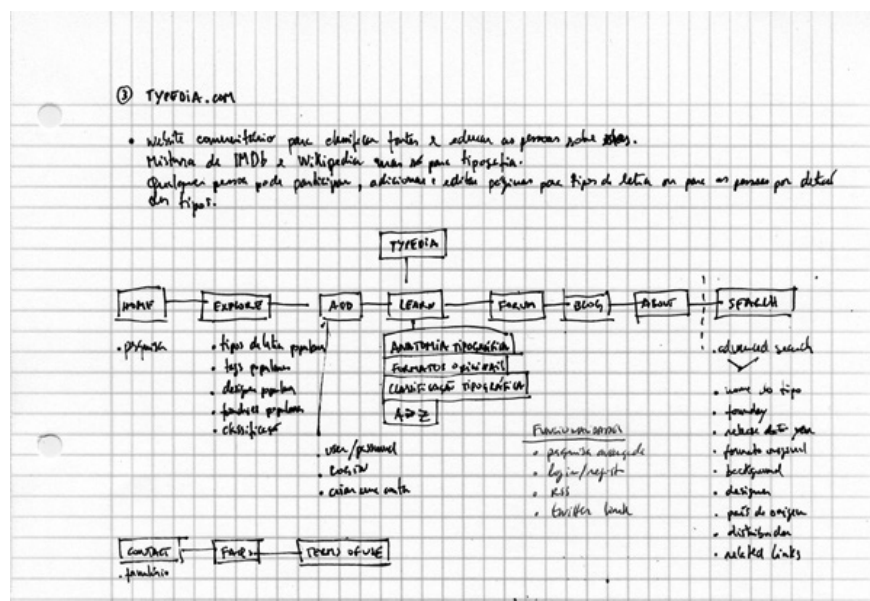 ③ TYPEDIA.COM
• website comunitário para classificar fontes e educar as pessoas sobre
Mistura de IMDb e Wikipedia mas só para tipografia.
Qualquer pessoa pode participar, adicionar e editar páginas para tipos de letra ou para as pessoas por detrás
dos tipos.
TYPEDIA
HOME EXPLORE ADD LEARN FORUM BLOG ABOUT SEARCH
• pesquisa
• tipos de letra populares
• tags populares
• designers populares
• foundries populares
• classificação
• user/password
• LOGIN
• criar uma conta
ANATOMIA TIPOGRÁFICA
FORMATOS ORIGINAIS
CLASSIFICAÇÃO TIPOGRÁFICA
A → Z
FUNCIONALIDADES
• pesquisa avançada
• login/regist
• RSS
• twitter link
• advanced search
• nome do tipo
• foundry
• release date year
• formato original
• background
• designer
• país de origem
• distribuidor
• related links
CONTACT FAQs TERMS OF USE
• formulário